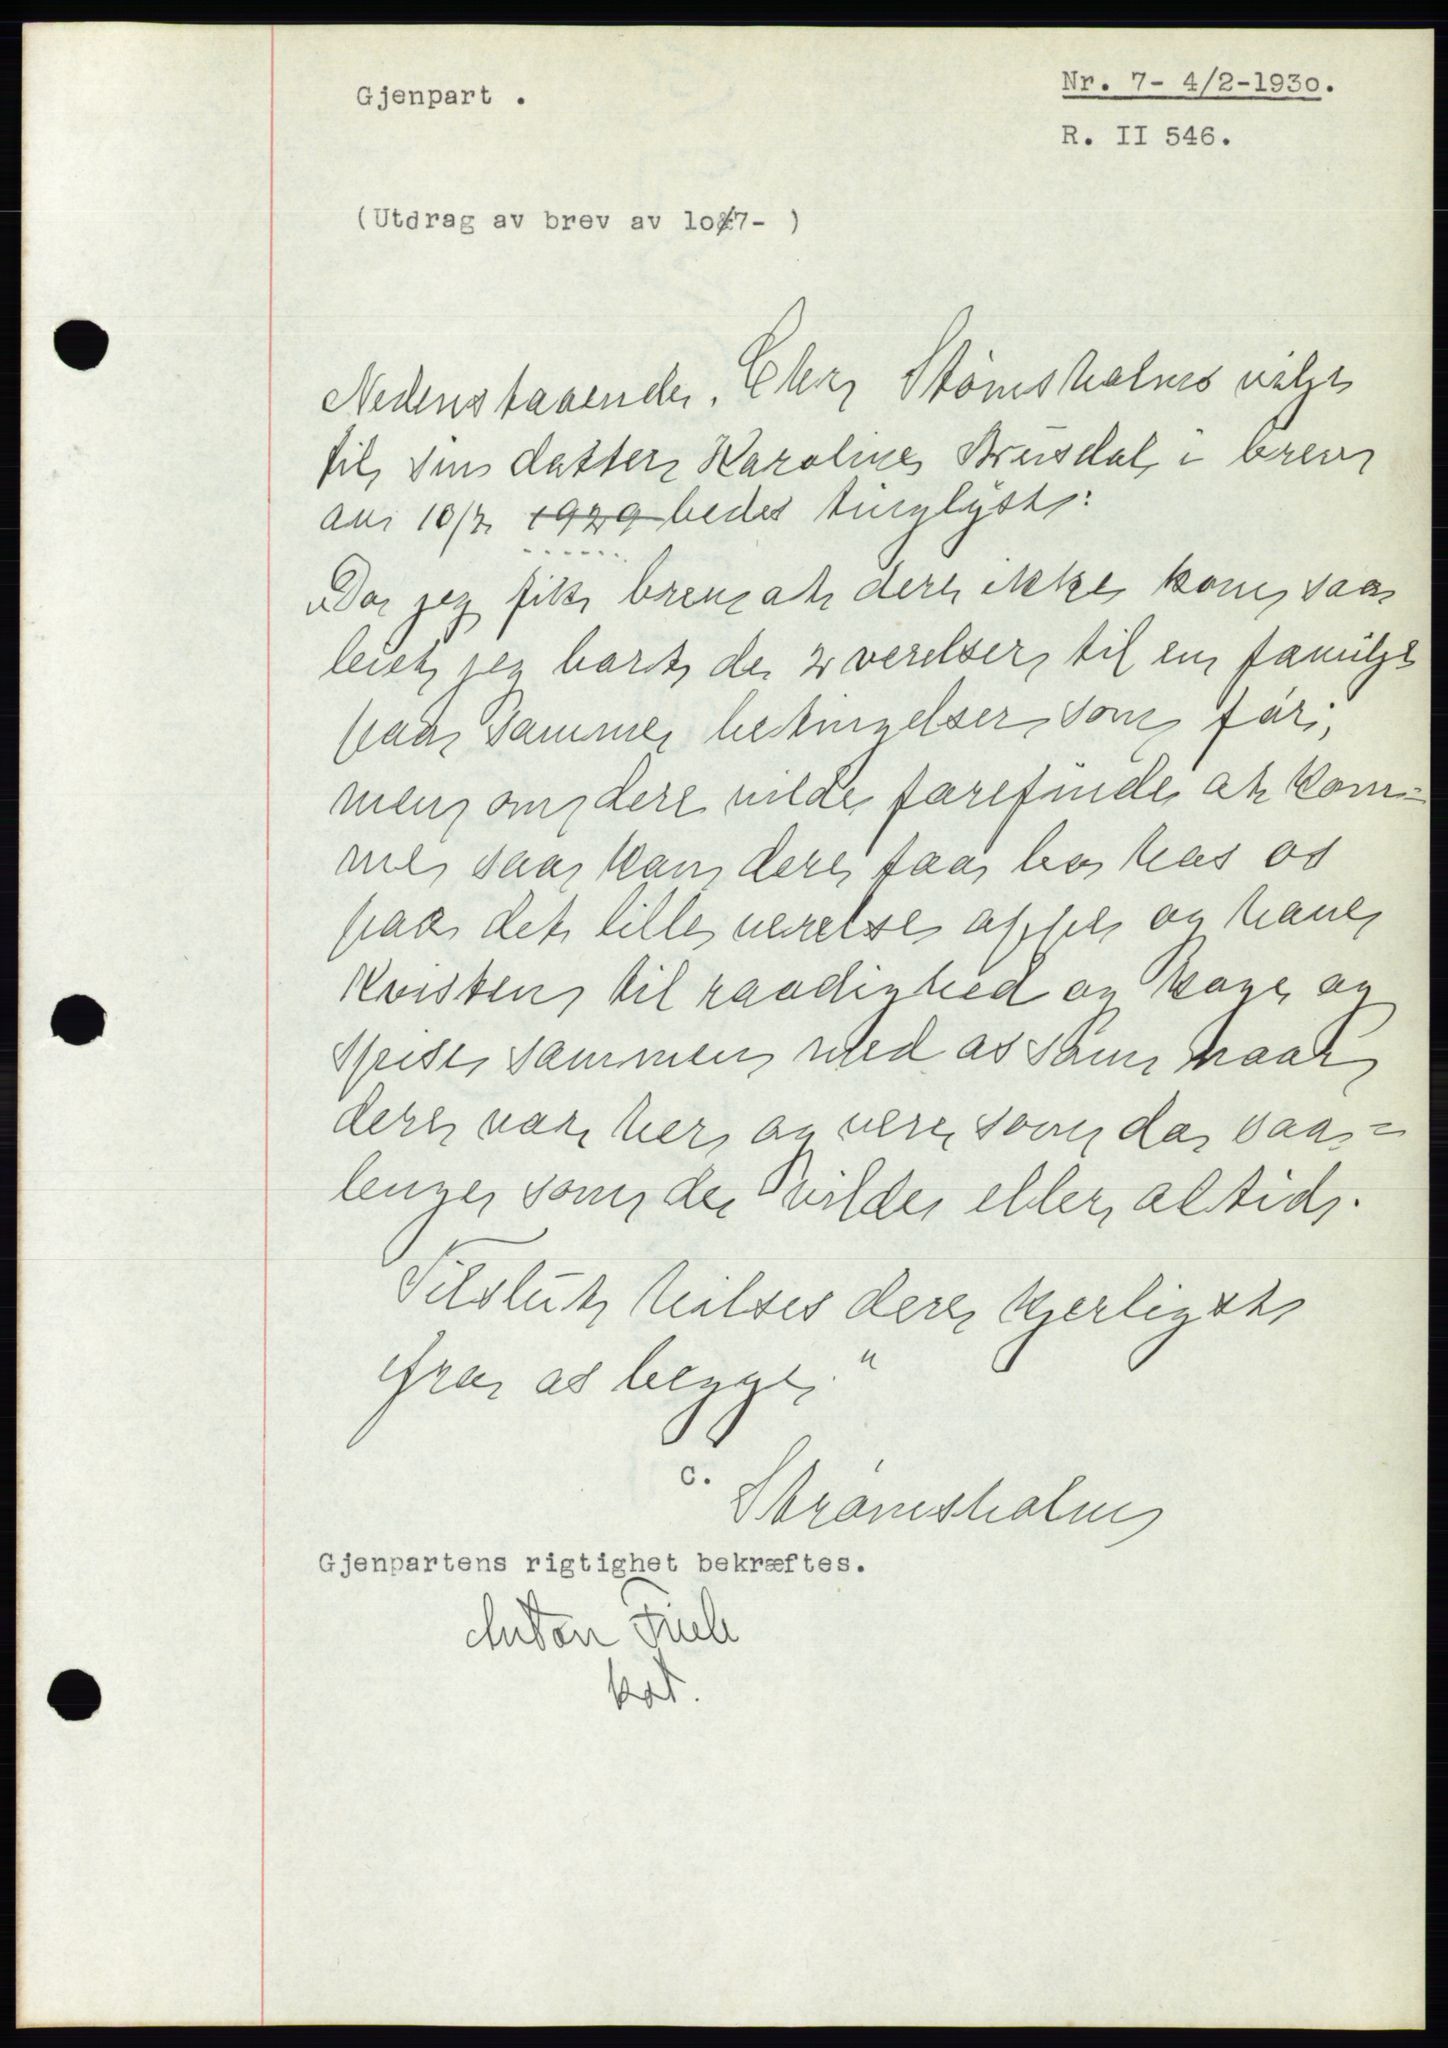 Gjenpart .
Nr. 7- 4/2-1930.
R. II 546.
(Utdrag av brev av 10/7- )
Nedenstaaende, Chr. Stömsholms vilje
til sin datter Karoline Brusdal i brev
av 10/7 1929 bedes tinglyst:
"Da jeg fik brev at dere ikke kom, saa
leiet jeg bort de 2 verelser til en familje
paa samme betingelser som før;
men om dere vilde forefinde at kom=
me saa kan dere faa bo hos os
paa det lille verelse oppe og have
kvisten til raadighed og koge og
spise sammen med os som naar
dere var her og vere som da saa=
lenge som de vilde eller altid.
Tilslut hilses dere kjerligst
fra os begge."
C. Strømsholm
Gjenpartens rigtighet bekræftes.
Anton
kst.